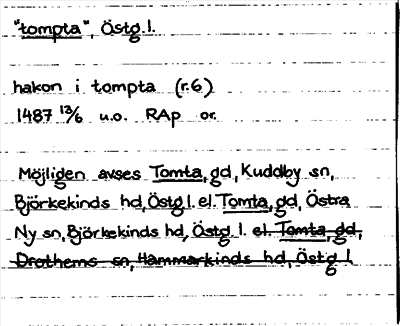 "tompta", Östg.l.
hakon i tompta (r.6)
1487 13/6 u.o. RAp or.
Möjligen avses Tomta, gd, Kuddby sn,
Björkekinds hd, Östg l. el. Tomta, gd, Östra
Ny sn, Björkekinds hd, Östg. l. el. Tomta, gd,
Drothems sn, Hammarkinds hd, Östg l